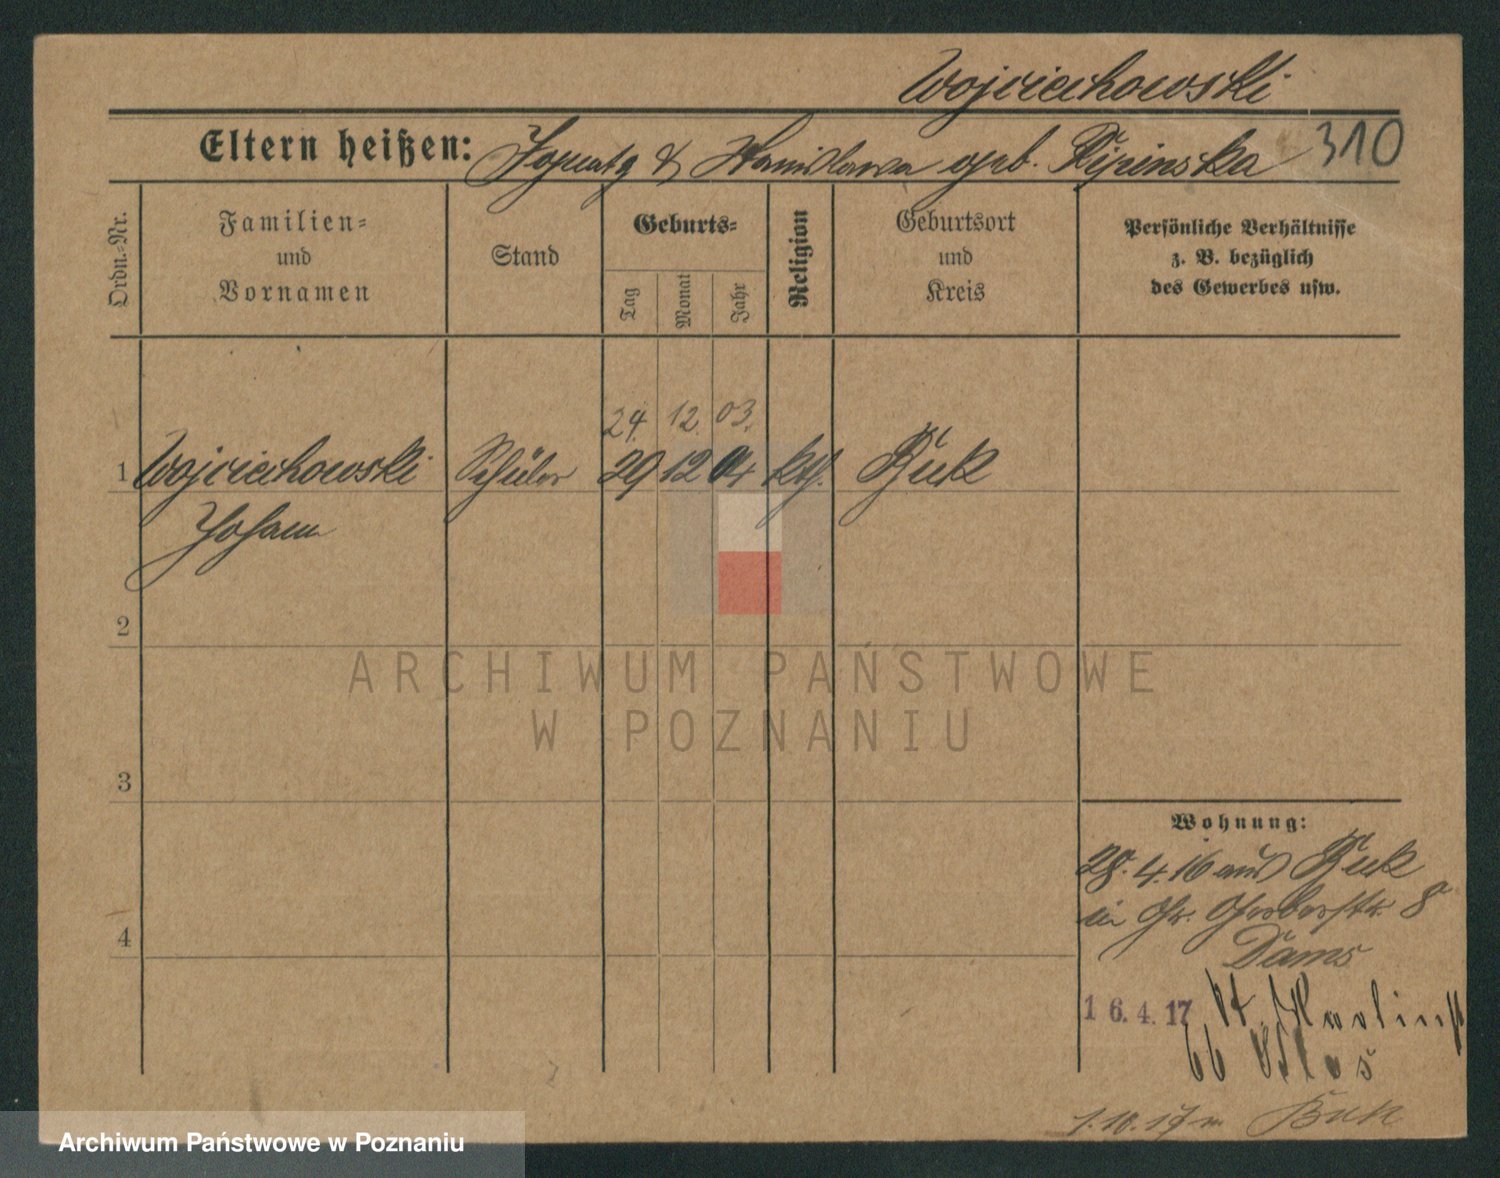 Wojciechowski
Eltern heißen: Ignatz & Stanislawa geb. Pipinska 310
Ordn.-Nr.
Familien-
und
Vornamen
Stand
Geburts-
Tag
Monat
Jahr
Religion
Geburtsort
und
Kreis
Persönliche Verhältnisse
z. B. bezüglich
des Gewerbes usw.
24. 12. 03.
1 Wojciechowski Schüler 29 12 04 kth. Buk
Johann
2
ARCHIWUM PAŃSTWOWE
W POZNANIU
3
Wohnung:
28. 4. 16 aus Buk
in Gr. Gerberstr. 8
4
Dams
16.4.17 St. Martinstr
66
1.10.17 n Buk
Archiwum Państwowe w Poznaniu